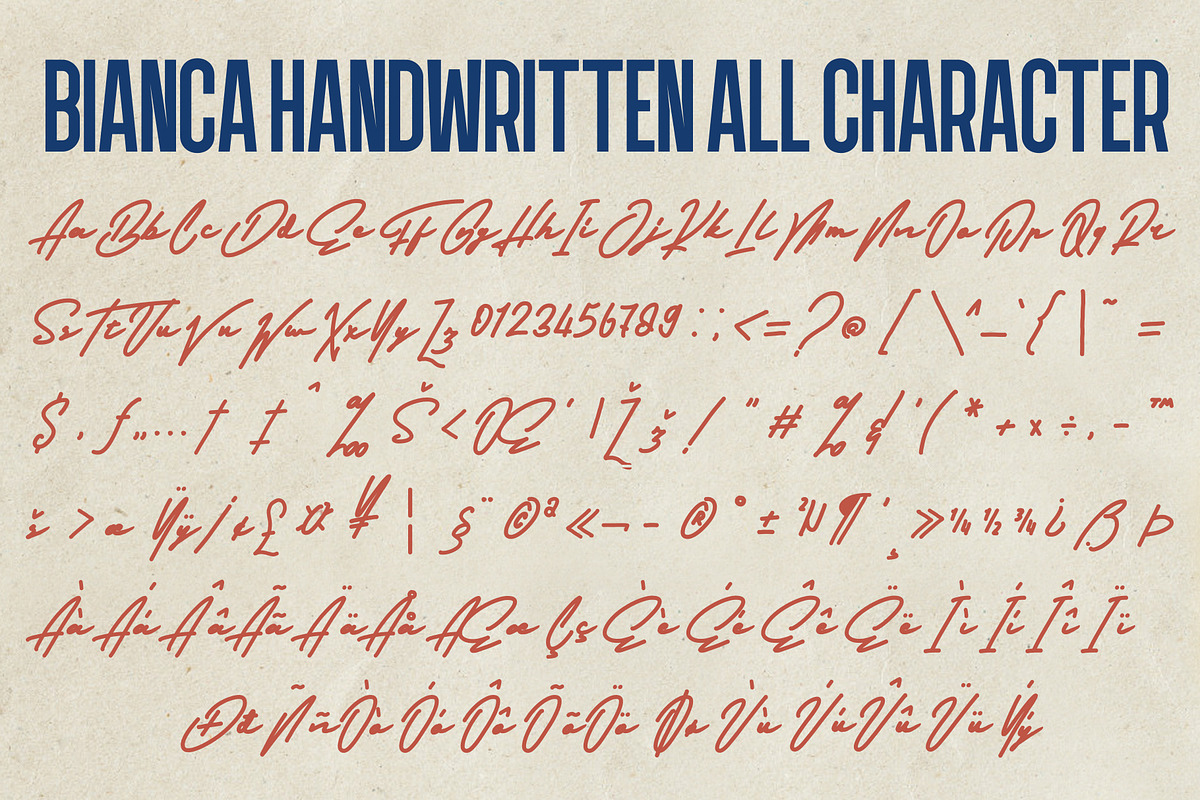 BIANCA HANDWRITTEN ALL CHARACTER
Aa Bb Cc Dd Ee Ff Gg Hh Ii Jj Kk Ll Mm Nn Oo Pp Qq Rr
Ss Tt Uu Vv Ww Xx Yy Zz 0123456789 : ; < = ? @ [ \ ^ _ ` { | ~ =
$ , ƒ „ … † ‡ ˆ ‰ Š < Œ ‘ | Ž ž ! " # % & ' ( * + × ÷ , - ™
š > œ Ÿ ÿ / ¢ £ ¤ ¥ ¦ § ¨ © ª « ¬ - ® ° ± ² µ ¶ ' ¸ » ¼ ½ ¾ ¿ ß Þ
Àà Áá Ââ Ãã Ää Åå Ææ Çç Èè Éé Êê Ëë Ìì Íí Îî Ïï
Đđ Ññ Òò Óó Ôô Õõ Öö Øø Ùù Úú Ûû Üü Ýý